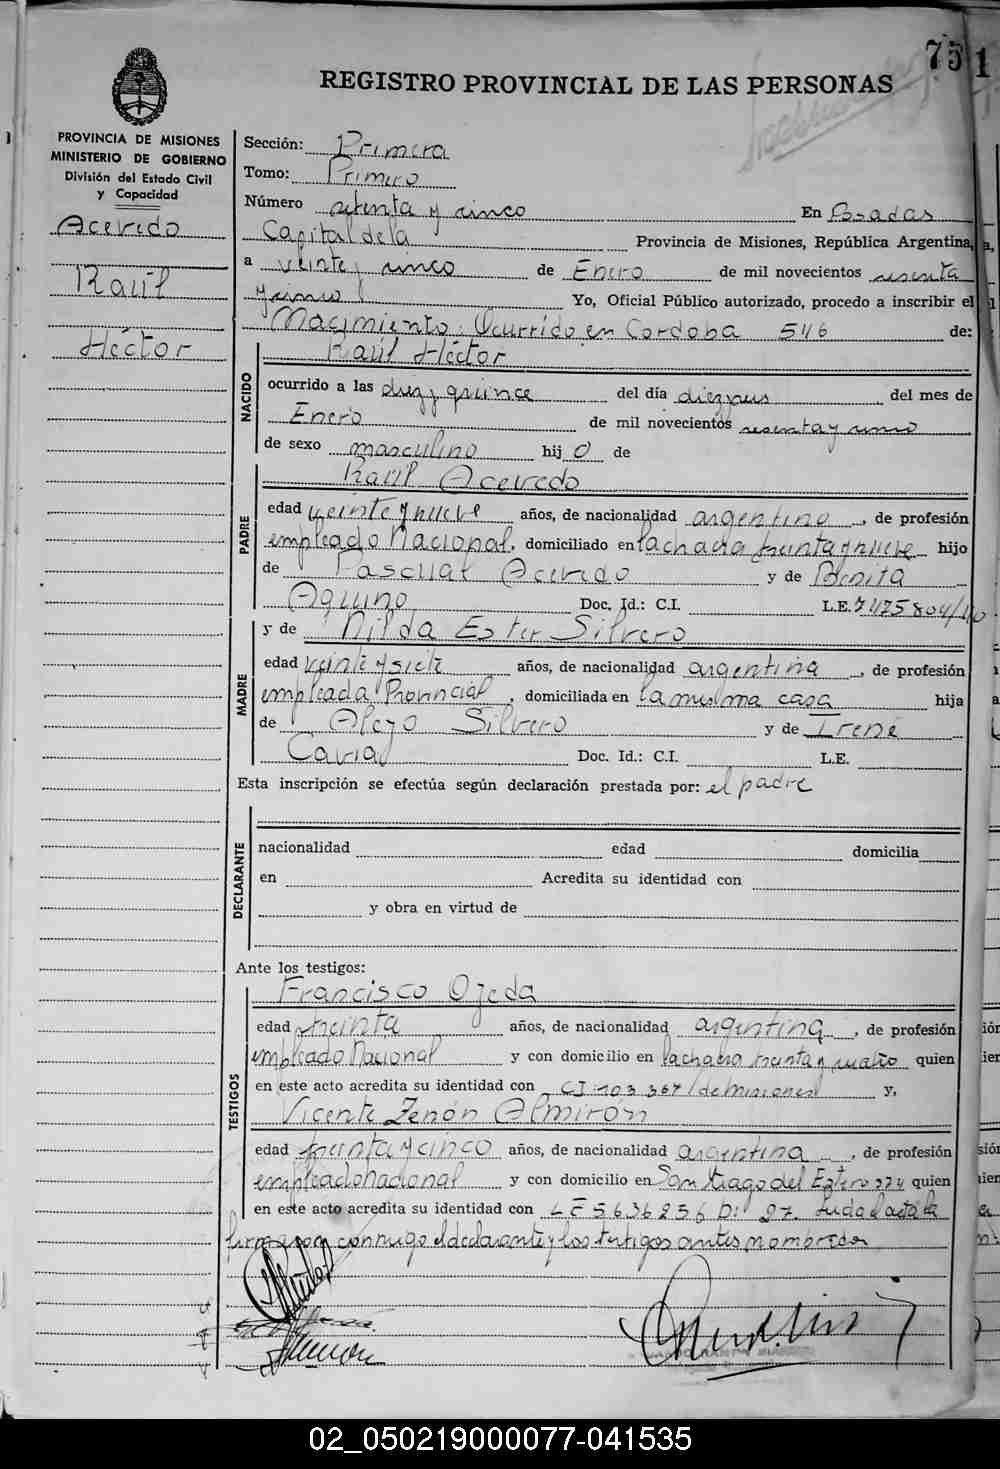 75 1
REGISTRO PROVINCIAL DE LAS PERSONAS
PROVINCIA DE MISIONES
MINISTERIO DE GOBIERNO
División del Estado Civil
y Capacidad
Acevedo
Raúl
Héctor
Sección: Primera
Tomo: Primero
Número setenta y cinco En Posadas
Capital de la Provincia de Misiones, República Argentina,
a veinte y cinco de Enero de mil novecientos sesenta
y uno Yo, Oficial Público autorizado, procedo a inscribir el
Nacimiento: Ocurrido en Cordoba 546 de:
NACIDO
Raúl Héctor
ocurrido a las diez y quince del día dieziseis del mes de
Enero de mil novecientos sesenta y uno
de sexo masculino hijo de
PADRE
Raúl Acevedo
edad veinte y nueve años, de nacionalidad argentino, de profesión
empleado Nacional, domiciliado en la chacra treinta y nueve hijo
de Pascual Acevedo y de Benita
Aquino Doc. Id.: C.I. L.E.
MADRE
y de Nilda Ester Silvero
edad veinte y siete años, de nacionalidad argentina, de profesión
empleada Provincial, domiciliada en la misma casa hija
de Alejo Silvero y de Irene
Cavia Doc. Id.: C.I. L.E.
Esta inscripción se efectúa según declaración prestada por: el padre
DECLARANTE
nacionalidad edad domicilia
en Acredita su identidad con
y obra en virtud de
Ante los testigos:
TESTIGOS
Francisco Ojeda
edad treinta años, de nacionalidad argentina, de profesión
empleado Nacional y con domicilio en la chacra treinta y cuatro quien
en este acto acredita su identidad con CI 103.367 de misiones y,
Vicente Zenón Almirón
edad treinta y cinco años, de nacionalidad argentina, de profesión
empleado nacional y con domicilio en Santiago del Estero 224 quien
en este acto acredita su identidad con LE 5636256 D: 27. Leida el acta la
firmaron conmigo el declarante y los testigos antes nombrados
02_050219000077-041535